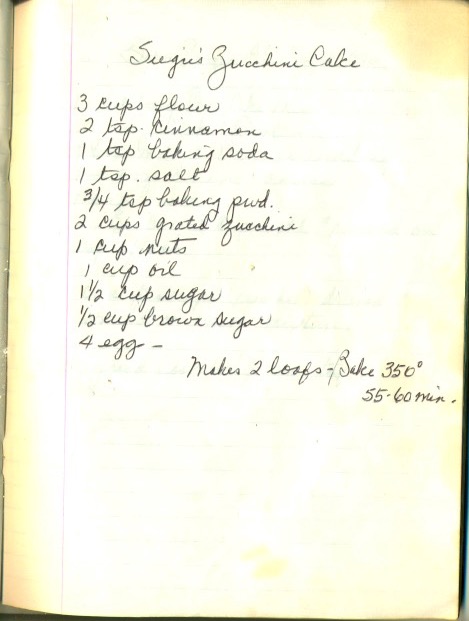 Zucchini Cake
3 cups flour
2 tsp. cinnamon
1 tsp baking soda
1 tsp. salt
3/4 tsp baking pwd.
2 cups grated zucchini
1 cup nuts
1 cup oil
1 1/2 cup sugar
1/2 cup brown sugar
4 egg -
Makes 2 loafs - Bake 350°
55-60 min.